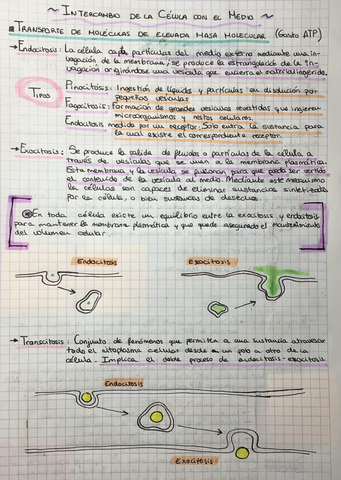 ~ INTERCAMBIO DE LA CÉLULA CON EL MEDIO ~
TRANSPORTE DE MOLÉCULAS DE ELEVADA MASA MOLECULAR (Gasto ATP)
→ Endocitosis: La célula capta partículas del medio externo mediante una in-
vaginación de la membrana, se produce la estrangulación de la in-
vaginación originándose una vesícula que encierra el material ingerido.
TIPOS
Pinocitosis: Ingestión de líquidos y partículas en disolución por
pequeñas vesículas
Fagocitosis: Formación de grandes vesículas revestidas que ingieren
microorganismos y restos celulares.
Endocitosis mediada por un receptor. Solo entra la sustancia para
la cual existe el correspondiente receptor.
→ Exocitosis: Se produce la salida de fluidos o partículas de la célula a
través de vesículas que se unen a la membrana plasmática.
Esta membrana y la vesícula se fusionan para que pueda ser vertido
el contenido de la vesícula al medio. Mediante este mecanismo
las células son capaces de eliminar sustancias sintetizadas
por la célula, o bien sustancias de desecho.
En toda célula existe un equilibrio entre la exocitosis y endocitosis
para mantener la membrana plasmática y que quede asegurado el mantenimiento
del volumen celular.
Endocitosis
Exocitosis
→ Transcitosis: Conjunto de fenómenos que permiten a una sustancia atravesar
todo el citoplasma celular desde un polo a otro de la
célula. Implica el doble proceso de endocitosis-exocitosis
Endocitosis
Exocitosis